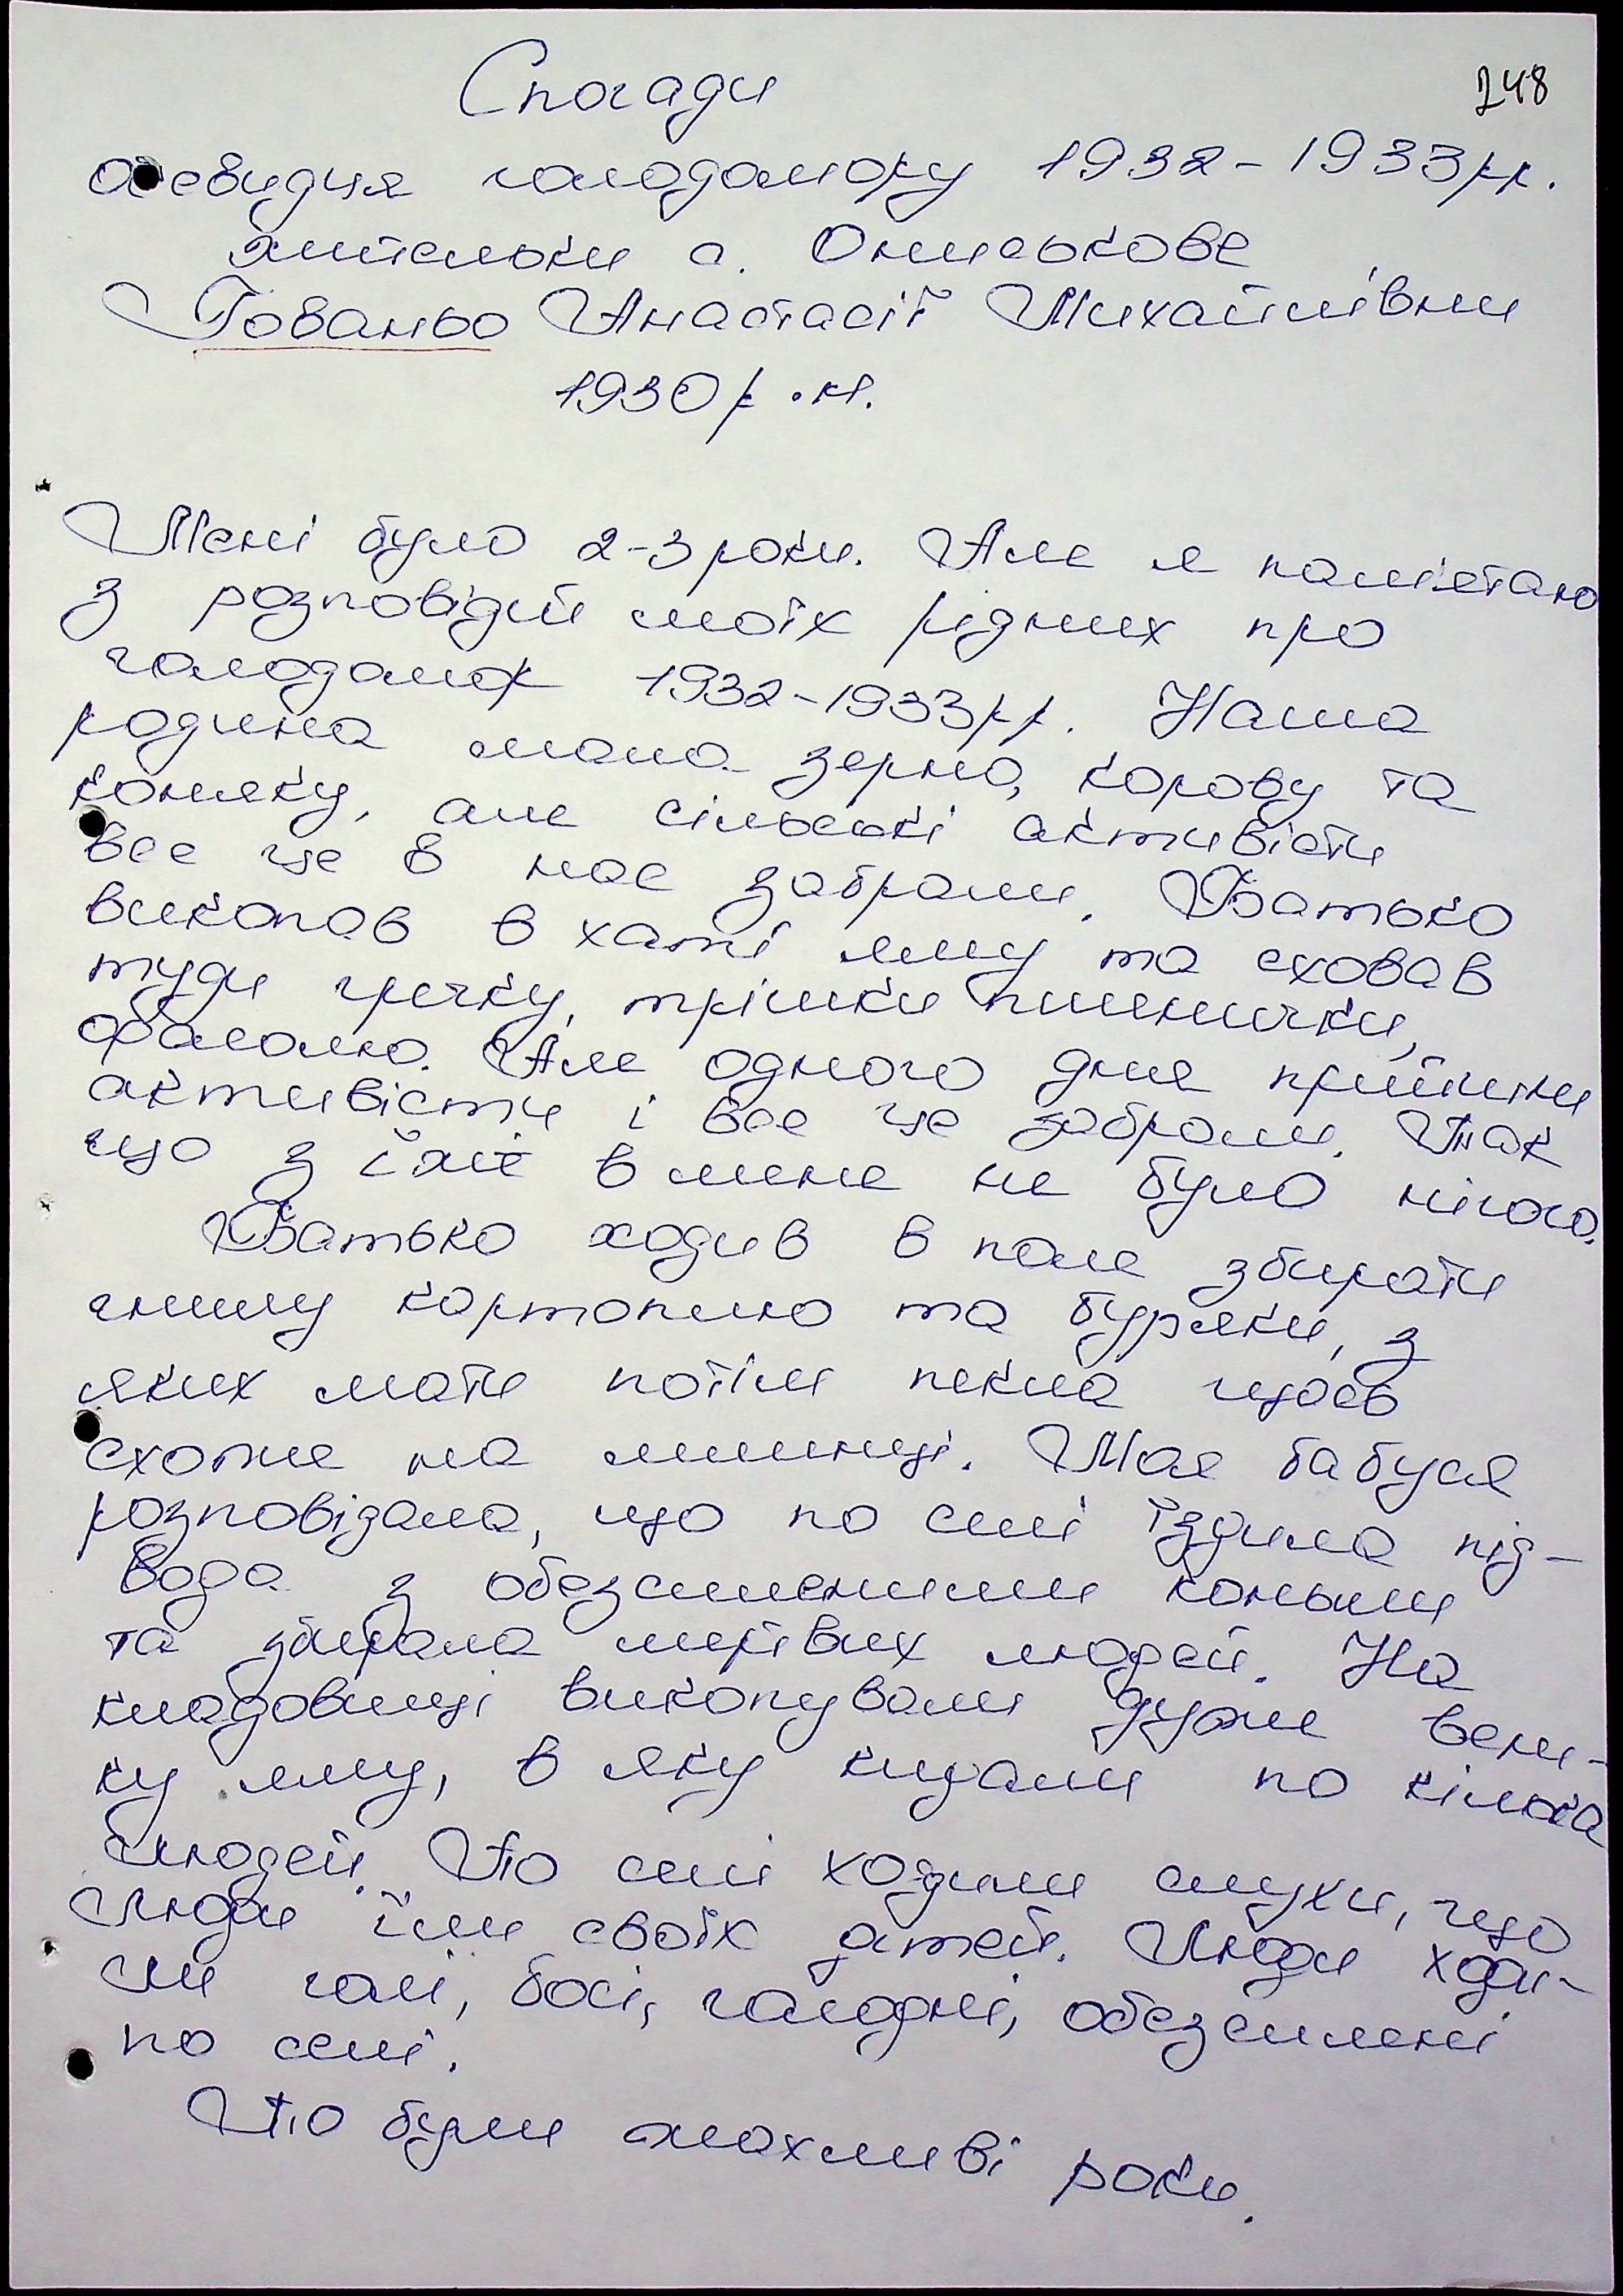 Спогади
248
очевидця голодомору 1932-1933рр.
жительки с. Ониськове
Гованьо Анастасії Михайлівни
1930р.н.
Мені було 2-3 роки. Але я пам'ятаю
з розповідей моїх рідних про
голодомор 1932-1933рр. Наша
родина мала зерно, корову та
коняку, але сільські активісти
все це в нас забрали. Батько
викопав в хаті яму та сховав
туди гречку, трішки пшенички,
фасолю. Але одного дня прийшли
активісти і все це забрали. Так
що з їжі в мене не було нічого.
Батько ходив в поле збирати
гнилу картоплю та буряки, з
яких мати потім пекла щось
схоже на млинці. Моя бабуся
розповідала, що по селі їздила під-
вода з обезсиленими коньми
та збирала мертвих людей. На
кладовищі викопували дуже вели-
ку яму, в яку кидали по кілька
людей. По селі ходили слухи, що
люди їли своїх дітей. Люди ходи-
ли голі, босі, голодні, обезсилені
по селі.
То були жахливі роки.